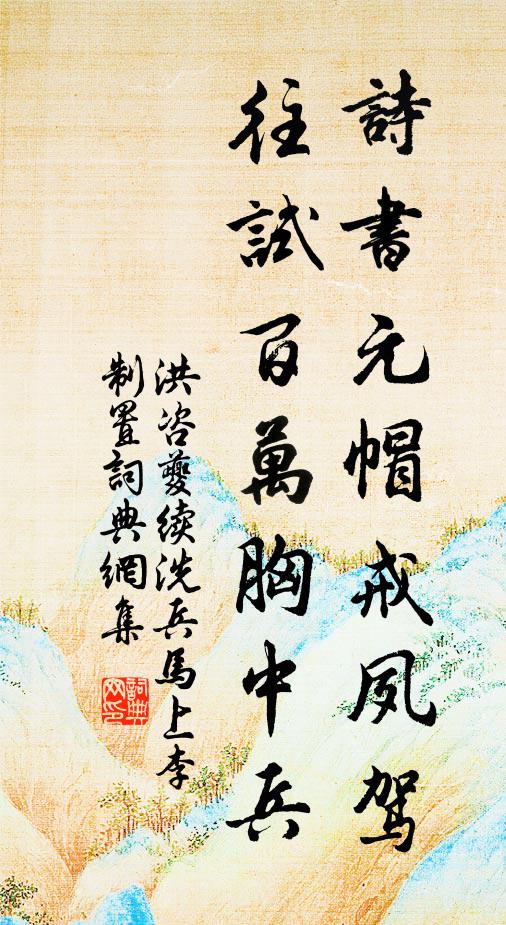 詩書元帽戒夙駕
往試百萬胸中兵
洪咨夔續洗兵馬上李
制置詞典網集
詞典網印